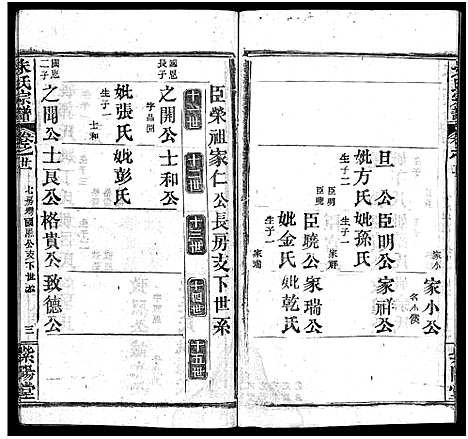 家小公
名小儀
家小
旦公臣明公家祥公
妣方氏妣孫氏
生子二
生子一
臣明
臣曉
家祥
臣曉公家瑞公
妣金氏妣乾氏
生子一
家瑞
臣榮祖家仁公長房支下世系
十一世
十二世
十三世
十四世
十五世
國恩長子
之開公士和公
字晶淵
妣張氏妣彭氏
生子一
士和
國恩二子
之閗公士良公格貴公致德公
朱氏宗譜
卷之廿一
七房灣國恩公支下世系
三
紫陽堂